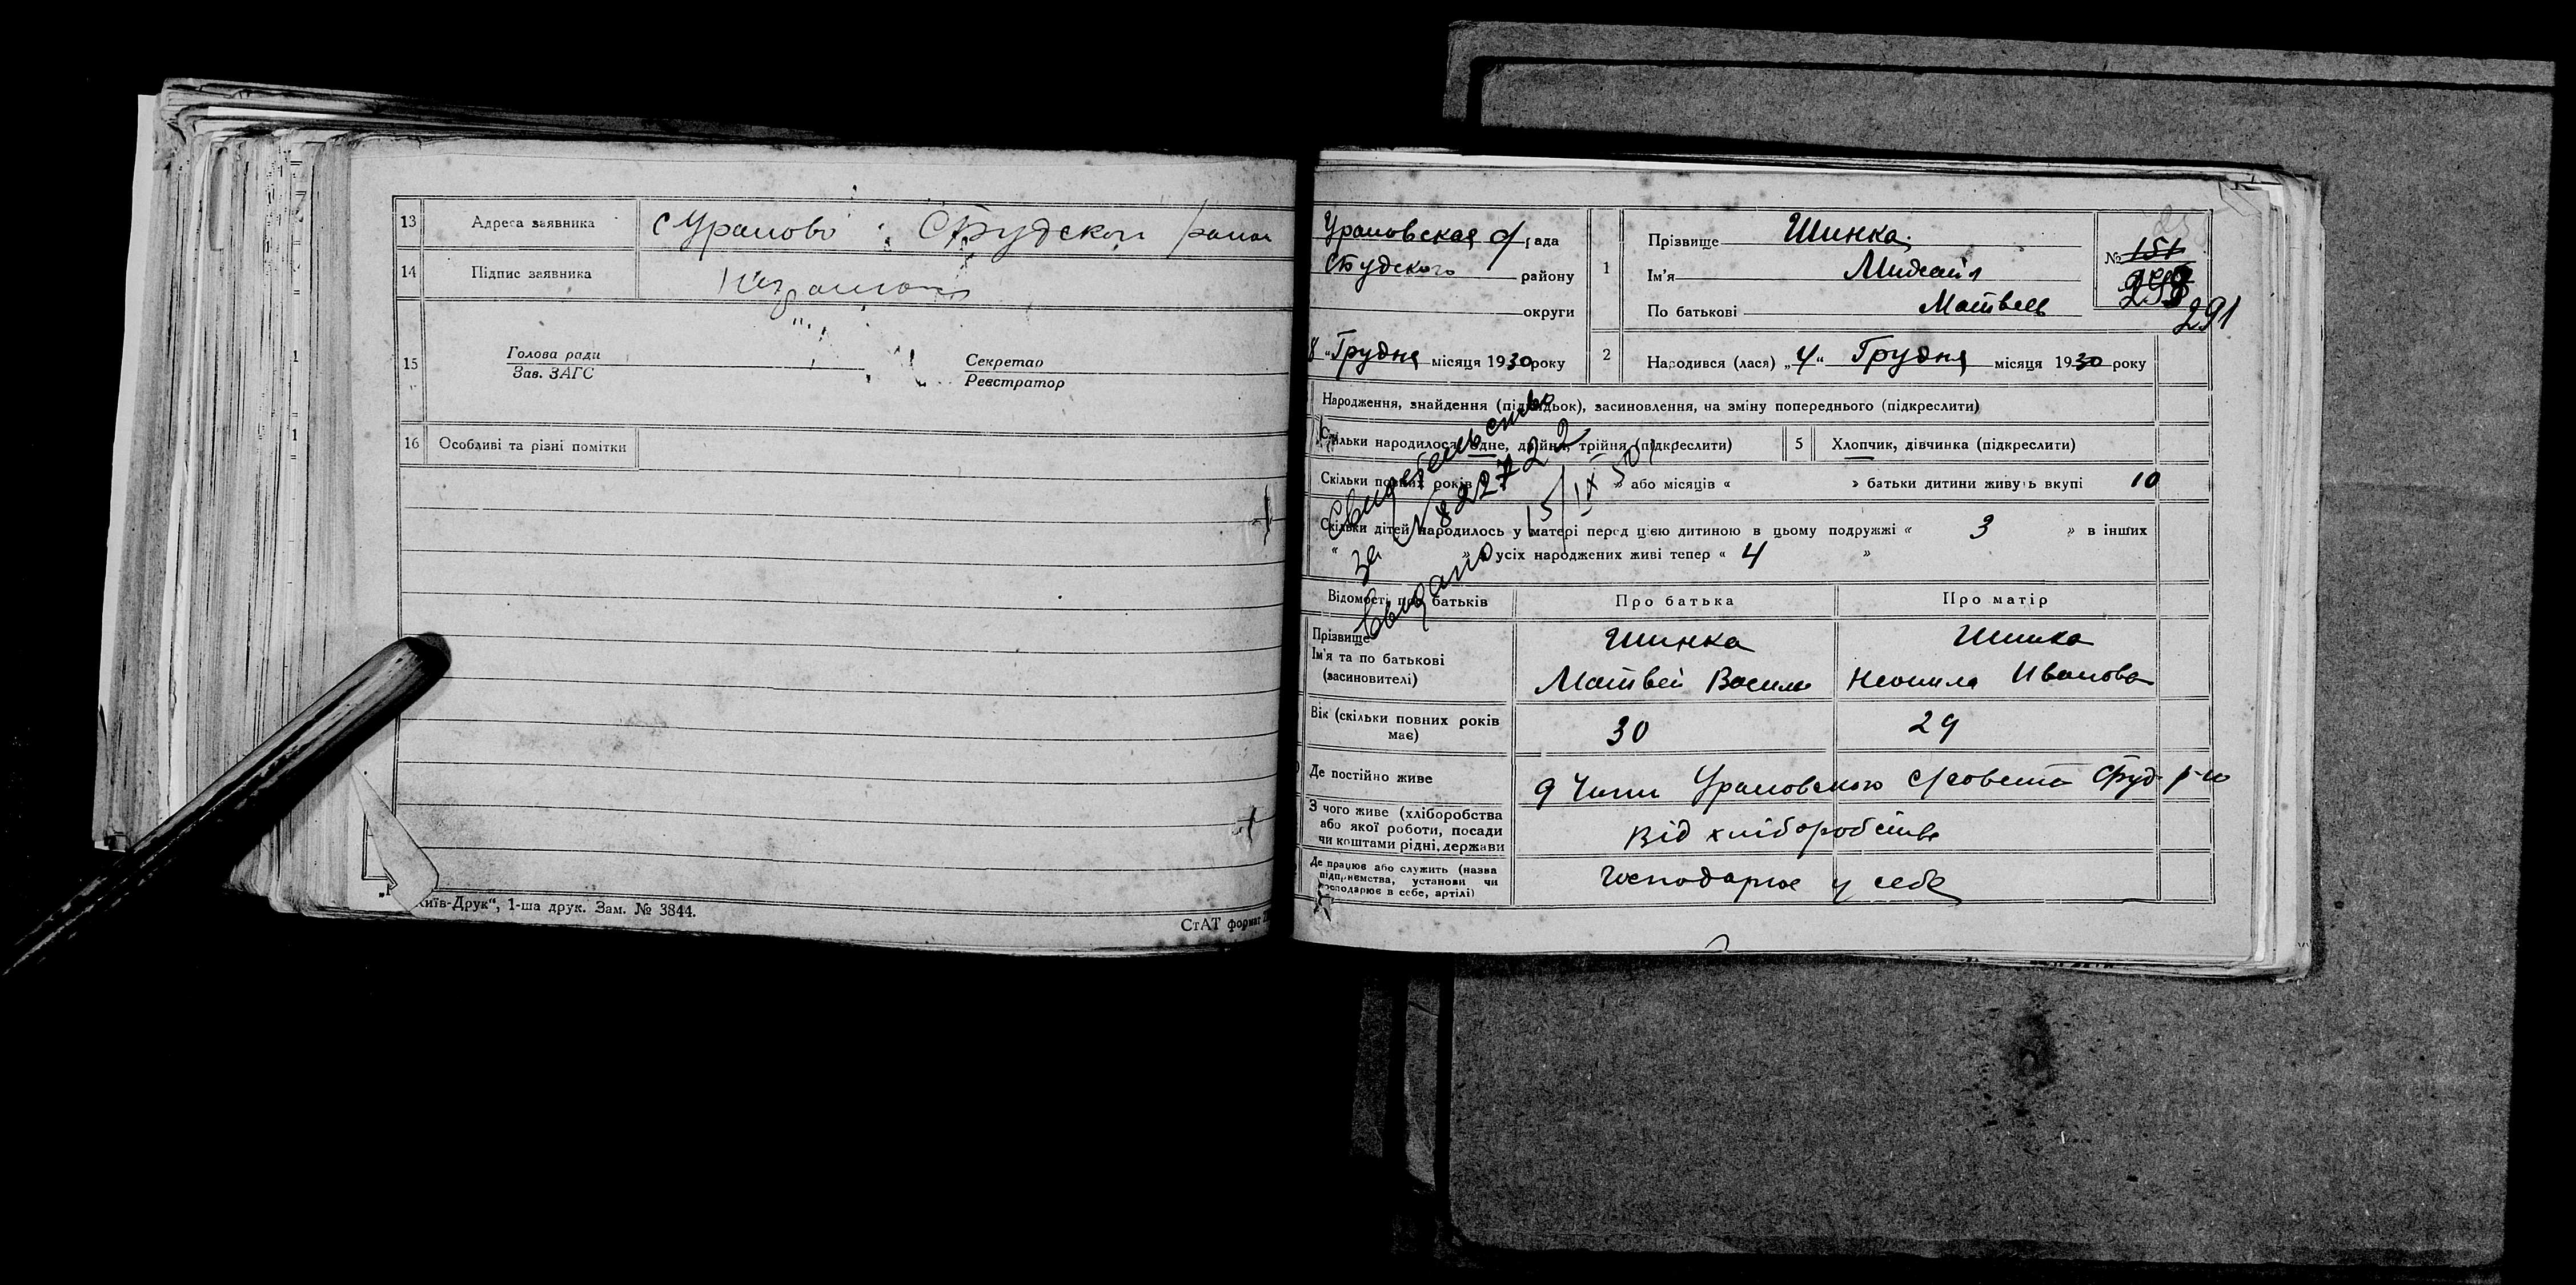 13 Адреса заявника с Урапово Студской район
14 Підпис заявника
15 Голова ради
Зав. ЗАГС
Секретар
Реєстратор
16 Особливі та різні помітки
Київ-Друк", 1-ша друк. Зам. № 3844.
СтАТ формат
Ураповская с/рада
Студского району
округи
8 „Грудня місяця 1930 року
1 Прізвище Шинка
Ім'я Михаіл
По батькові Матвеев
№ 151
298
291
2 Народився (лася) „4" Грудня місяця 1930 року
Народження, знайдення (підкидьок), засиновлення, на зміну попереднього (підкреслити)
Скільки народилося: одне, двійня, трійня (підкреслити)
5 Хлопчик, дівчинка (підкреслити)
Скільки повних років » або місяців « » батьки дитини живуть вкупі 10
Скільки дітей народилось у матері перед цією дитиною в цьому подружжі « 3 » в інших
« » З усіх народжених живі тепер « 4 »
Свидетельство
за № 822722
Выдано 15/IX 50
Відомості про батьків Про батька Про матір
Прізвище Шинка Шинка
Ім'я та по батькові
(засиновителі) Матвей Васили Неонила Иванова
Вік (скільки повних років
має) 30 29
Де постійно живе Ураповского с/совета Студ р-ю
З чого живе (хліборобства
або якої роботи, посади
чи коштами рідні, держави Від хліборобства
Де працює або служить (назва
підприємства, установи чи
господарює в себе, артілі) Господарює у себе